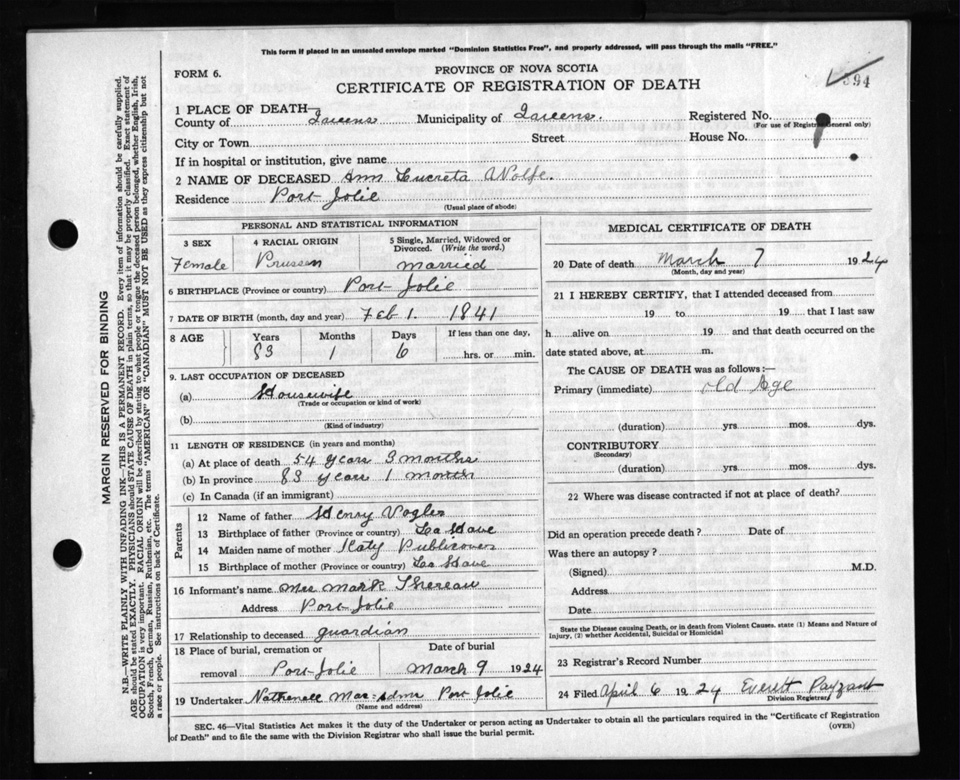 This form if placed in an unsealed envelope marked "Dominion Statistics Free", and properly addressed, will pass through the mails "FREE."
FORM 6.
PROVINCE OF NOVA SCOTIA
CERTIFICATE OF REGISTRATION OF DEATH
394
1 PLACE OF DEATH—
County of Queens Municipality of Queens. Registered No.
(For use of Registrar General only)
City or Town Street House No.
If in hospital or institution, give name
2 NAME OF DECEASED Ann Lucreta Wolfe.
Residence Port Jolie
(Usual place of abode)
PERSONAL AND STATISTICAL INFORMATION
3 SEX 4 RACIAL ORIGIN 5 Single, Married, Widowed or Divorced. (Write the word.)
Female Prussen married
6 BIRTHPLACE (Province or country) Port Jolie
7 DATE OF BIRTH (month, day and year) Feb 1. 1841
8 AGE Years Months Days If less than one day,
83 1 6 hrs. or min.
9. LAST OCCUPATION OF DECEASED
(a) Housewife
(Trade or occupation or kind of work)
(b)
(Kind of industry)
11 LENGTH OF RESIDENCE (in years and months)
(a) At place of death 54 years 3 months
(b) In province 83 years 1 month
(c) In Canada (if an immigrant)
Parents
12 Name of father Henry Vogler
13 Birthplace of father (Province or country) Lea Have
14 Maiden name of mother Katy Publicover
15 Birthplace of mother (Province or country) Lea Have
16 Informant's name Mrs Mark Thereau
Address Port Jolie
17 Relationship to deceased guardian
18 Place of burial, cremation or Date of burial
removal Port Jolie March 9 1924
19 Undertaker Nathanall Port Jolie
(Name and address)
MEDICAL CERTIFICATE OF DEATH
20 Date of death March 7 1924
(Month, day and year)
21 I HEREBY CERTIFY, that I attended deceased from
19 to 19 that I last saw
h alive on 19 and that death occurred on the
date stated above, at m.
The CAUSE OF DEATH was as follows:—
Primary (immediate) old Age
(duration) yrs. mos. dys.
CONTRIBUTORY
(Secondary)
(duration) yrs. mos. dys.
22 Where was disease contracted if not at place of death?
Did an operation precede death? Date of
Was there an autopsy?
(Signed) M.D.
Address
Date
State the Disease causing Death, or in death from Violent Causes, state (1) Means and Nature of
Injury, (2) whether Accidental, Suicidal or Homicidal
23 Registrar's Record Number
24 Filed April 6 1924 Everett Payzant
Division Registrar
SEC. 46—Vital Statistics Act makes it the duty of the Undertaker or person acting as Undertaker to obtain all the particulars required in the "Certificate of Registration
of Death" and to file the same with the Division Registrar who shall issue the burial permit.
(OVER)
MARGIN RESERVED FOR BINDING
N.B.—WRITE PLAINLY WITH UNFADING INK—THIS IS A PERMANENT RECORD. Every item of information should be carefully supplied.
AGE should be stated EXACTLY. PHYSICIANS should STATE CAUSE OF DEATH in plain terms, so that it may be properly classified. Exact statement of
OCCUPATION is very important. RACIAL ORIGIN will be described by stating to what people or tongue the deceased person belonged, whether English, Irish,
Scotch, French, German, Russian, Ruthenian, etc. The terms "AMERICAN" OR "CANADIAN" MUST NOT BE USED as they express citizenship but not
a race or people. See instructions on back of Certificate.